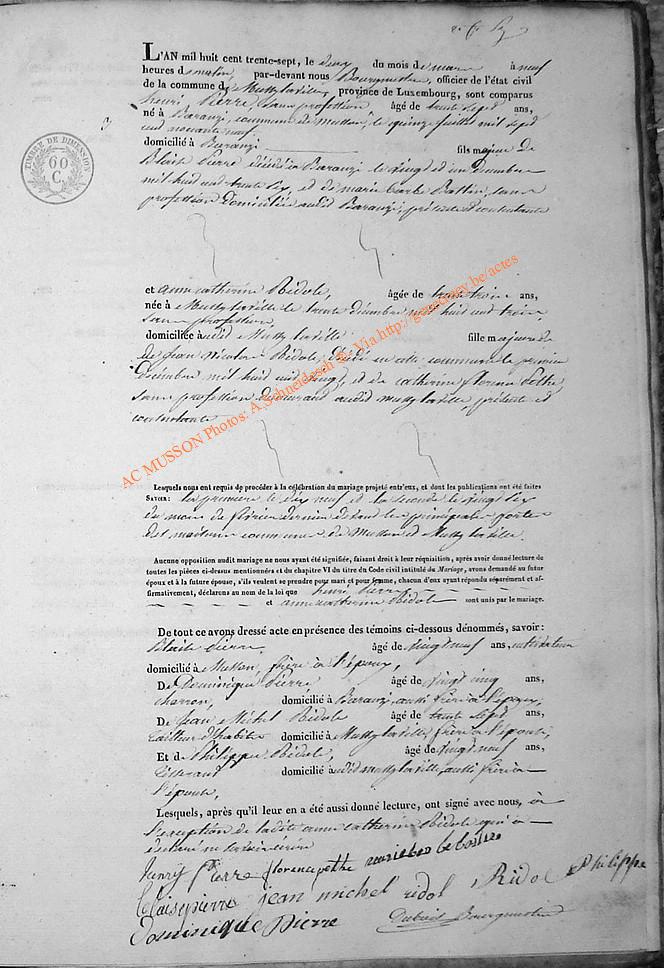 L'AN mil huit cent trente-sept, le deux du mois de mars à neuf
heures du matin, par-devant nous Bourgmestre, officier de l'état civil
de la commune de Mussy la ville, province de Luxembourg, sont comparus
henri Pierre, sans profession âgé de trente sept ans,
né à Baranzi, commune de Musson, le quinze juillet mil sept
cent nonante neuf
domicilié à Baranzi fils majeur de
Blaise Pierre décédé à Baranzi le vingt et un décembre
mil huit cent trente six, et de marie barbe sans
profession domiciliée audit Baranzi, présente et contentante
TIMBRE DE DIMENSION
60
C.
et anne catherine Ridole, âgée de trente trois ans,
née à Mussy la ville le trente décembre mil huit cent trois,
sans profession,
domiciliée audit Mussy la ville fille majeure de
de Jean Nicolas Ridole, décédé en cette commune le premier
décembre mil huit cent vingt, et de catherine florence Pethe
sans profession demeurant audit mussy la ville, présente et
contentante
Lesquels nous ont requis de procéder à la célébration du mariage projeté entr'eux, et dont les publications ont été faites
SAVOIR: la première le dix neuf et la seconde le vingt six
du mois de février dernier devant les principales portes
des maisons communes de Musson et Mussy la ville.
Aucune opposition audit mariage ne nous ayant été signifiée, faisant droit à leur réquisition, après avoir donné lecture de
toutes les pièces ci-dessus mentionnées et du chapitre VI du titre du Code civil intitulé du Mariage, avons demandé au futur
époux et à la future épouse, s'ils veulent se prendre pour mari et pour femme, chacun d'eux ayant répondu séparément et af-
firmativement, déclarons au nom de la loi que henri Pierre
et anne catherine Ridole sont unis par le mariage.
De tout ce avons dressé acte en présence des témoins ci-dessous dénommés, savoir:
Blaise Pierre, âgé de vingt neuf ans, cultivateur
domicilié à Musson, frère à l'époux,
De Dominique Pierre, âgé de vingt cinq ans,
charron, domicilié à Baranzi, aussi frère à l'époux,
De Jean Michel Ridole âgé de trente sept ans,
tailleur d'habits domicilié à Mussy la ville, frère à l'épouse,
Et de Philippe Ridole, âgé de vingt neuf ans,
tisserand domicilié audit mussy la ville, aussi frère à
l'épouse,
Lesquels, après qu'il leur en a été aussi donné lecture, ont signé avec nous, à
l'exception de la dite anne catherine Ridole qui a
déclaré ne savoir écrire
henry Pierre florence pethe
blaise pierre jean michel ridol Ridole Philippe
Dominique Pierre Bourgmestre
AC MUSSON Photos: A.Schneidesch ©. Via http://geneamey.be/actes